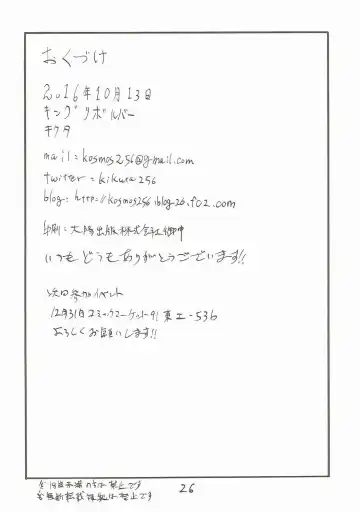 おくづけ
2016年10月13日
キングリボルバー
キクタ
mail:kosmos256@gmail.com
twitter:kikuta256
blog:http://kosmos256.blog26.fc2.com
印刷:大陽出版株式会社御中
いつもどうもありがとうございます!!
次回参加イベント
12月31日コミックマーケット91 東エ-53b
よろしくお願いします!!
※18歳未満の方は禁止です
※無断転載複製は禁止です
26